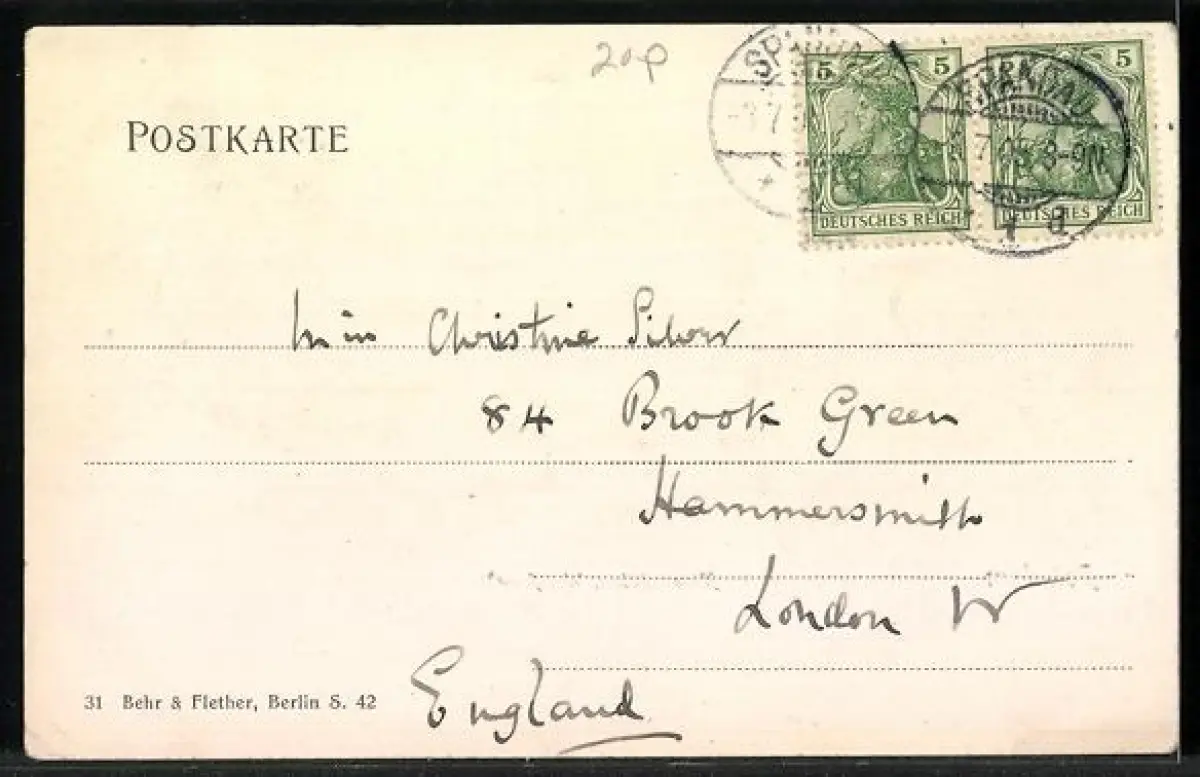 20p
POSTKARTE
5 5 5
DEUTSCHES REICH
DEUTSCHES REICH
SPANDAU
7 05 8-9N
Christine Silver
84 Brook Green
Hammersmith
London W
England
31 Behr & Flether, Berlin S. 42